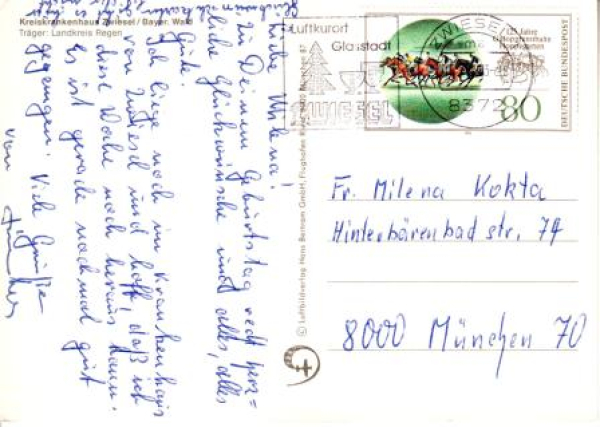 Kreiskrankenhaus Zwiesel / Bayer. Wald
Träger: Landkreis Regen
Liebe Milena!
Zu Deinem Geburtstag recht herz=
liche Glückwünsche und alles, alles
Gute.
Ich liege noch im Krankenhaus
von Zwiesel und hoff, daß ich
diese Woche noch heraus kann.
Es ist gerade nochmal gut
gegangen! Viele Grüße
von
Luftkurort
Glasstadt
ZWIESEL
ZWIESEL
8372
125 Jahre
80
DEUTSCHE BUNDESPOST
© Luftbildverlag Hans Bertram GmbH, Flughafen Riem, 8000 München 87
Fr. Milena Kokta
Hinterbärenbad str. 74
8000 München 70